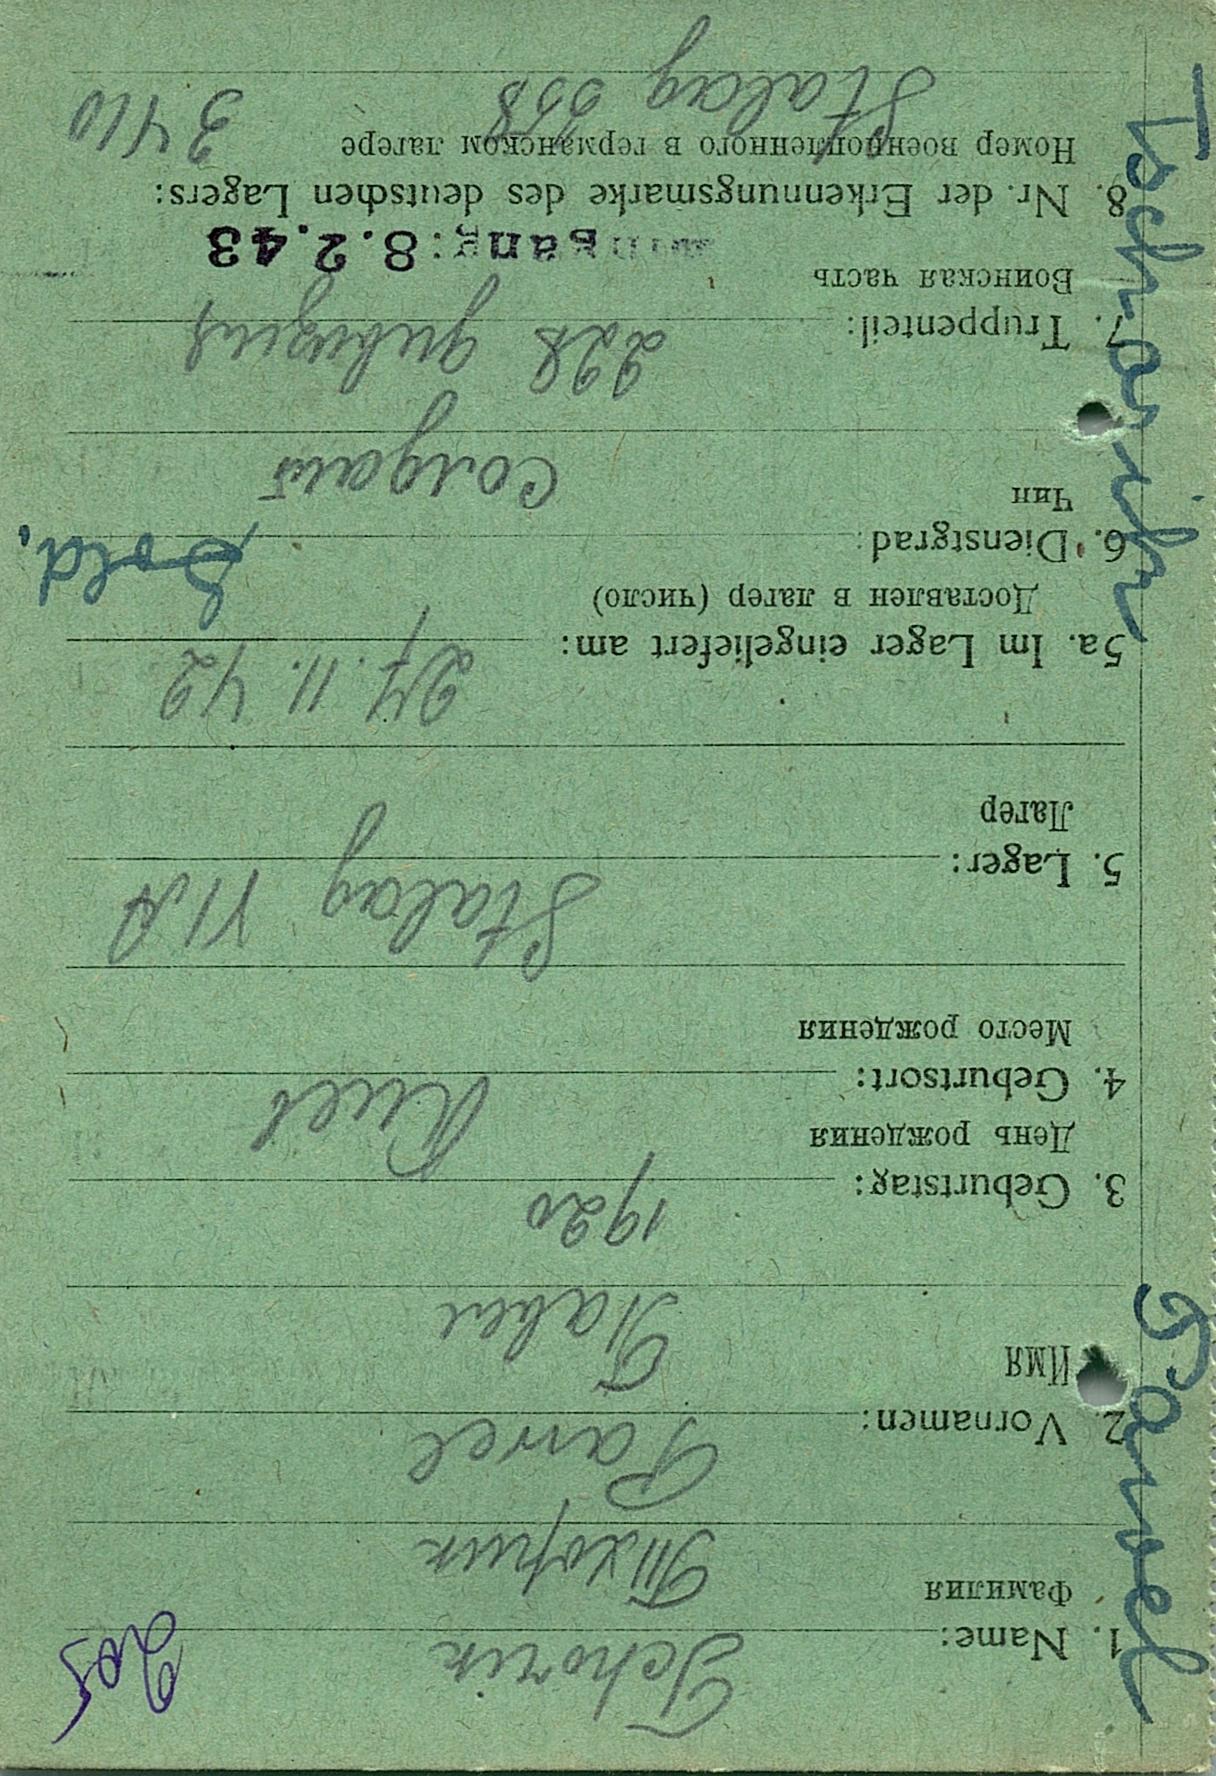 205
1. Name: Tchorik
Фамилия Тхорик
2. Vornamen: Pawel
Имя Павел
3. Geburtstag: 1920
День рождения
4. Geburtsort: Kiew
Место рождения
5. Lager: Stalag VI A
Лагер
5a. Im Lager eingeliefert am: 27.11.42
Доставлен в лагер (число)
6. Dienstgrad: Sold.
Чин Солдат
7. Truppenteil: 228 дивизия
Воинская часть
gang: 8.2.43
8. Nr. der Erkennungsmarke des deutschen Lagers:
Номер военнопленного в германском лагере 3410
Stalag 358
Tschorik Pawel